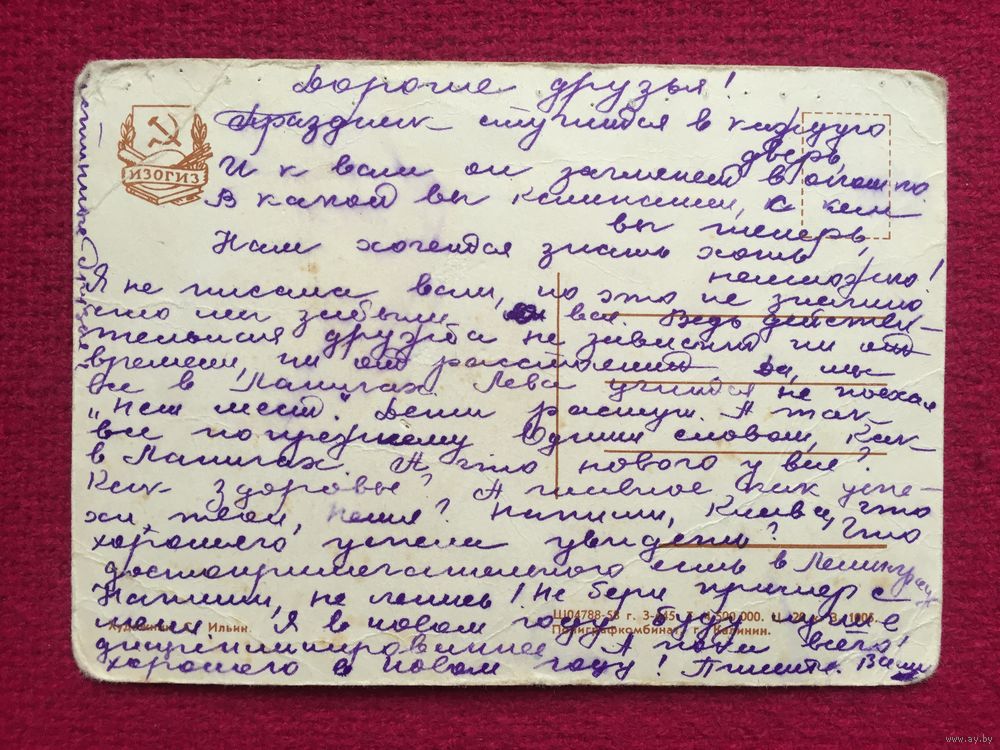 Дорогие друзья!
Праздник стучится в каждую
дверь,
И к вам он заглянет в окошко.
В какой вы компании, с кем
вы теперь,
Нам хочется знать хоть
немножко!
ИЗОГИЗ
Я не писала вам, но это не значит
что мы забыли вас. Ведь действи-
тельная дружба не зависит ни от
времени, ни от расстояния. Да, мы
все в Лапичах. Лева учится не поехал
"Нет мест". Дети растут. А так
все по прежнему. Одним словом, как
в Лапичах. А что нового у вас?
Как здоровье? А главное как успе-
хи, твои, Неля? Напиши, Клава, что
хорошего успели увидеть? Что
достопримечательного есть в Ленинграде
Напиши, не ленись! Не бери пример с
меня. Я в новом году буду уже
дисциплинированнее. А пока всего
хорошего в новом году! Пишите. Ваши
Художник Г. Ильин.
Ш04788-58 г. З-445. Т. 1.500.000. В. 1005.
Полиграфкомбинат г. Калинин.
друзья!
www.ay.by